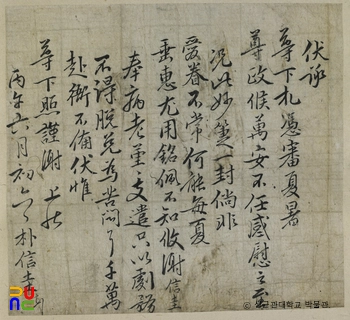 伏承
尊下札憑審夏暑
尊政候萬安不任感慰之至
況此妙箑一封倘非
愛眷不常何能每夏
垂惠尤用銘佩不知攸謝信圭
奉病老董支遣只以劇務
不得脫免爲苦悶了千萬
赴衙不備伏惟
尊下照謹謝上狀
丙午六月初六 朴信圭
ⓒ 성균관대학교 박물관